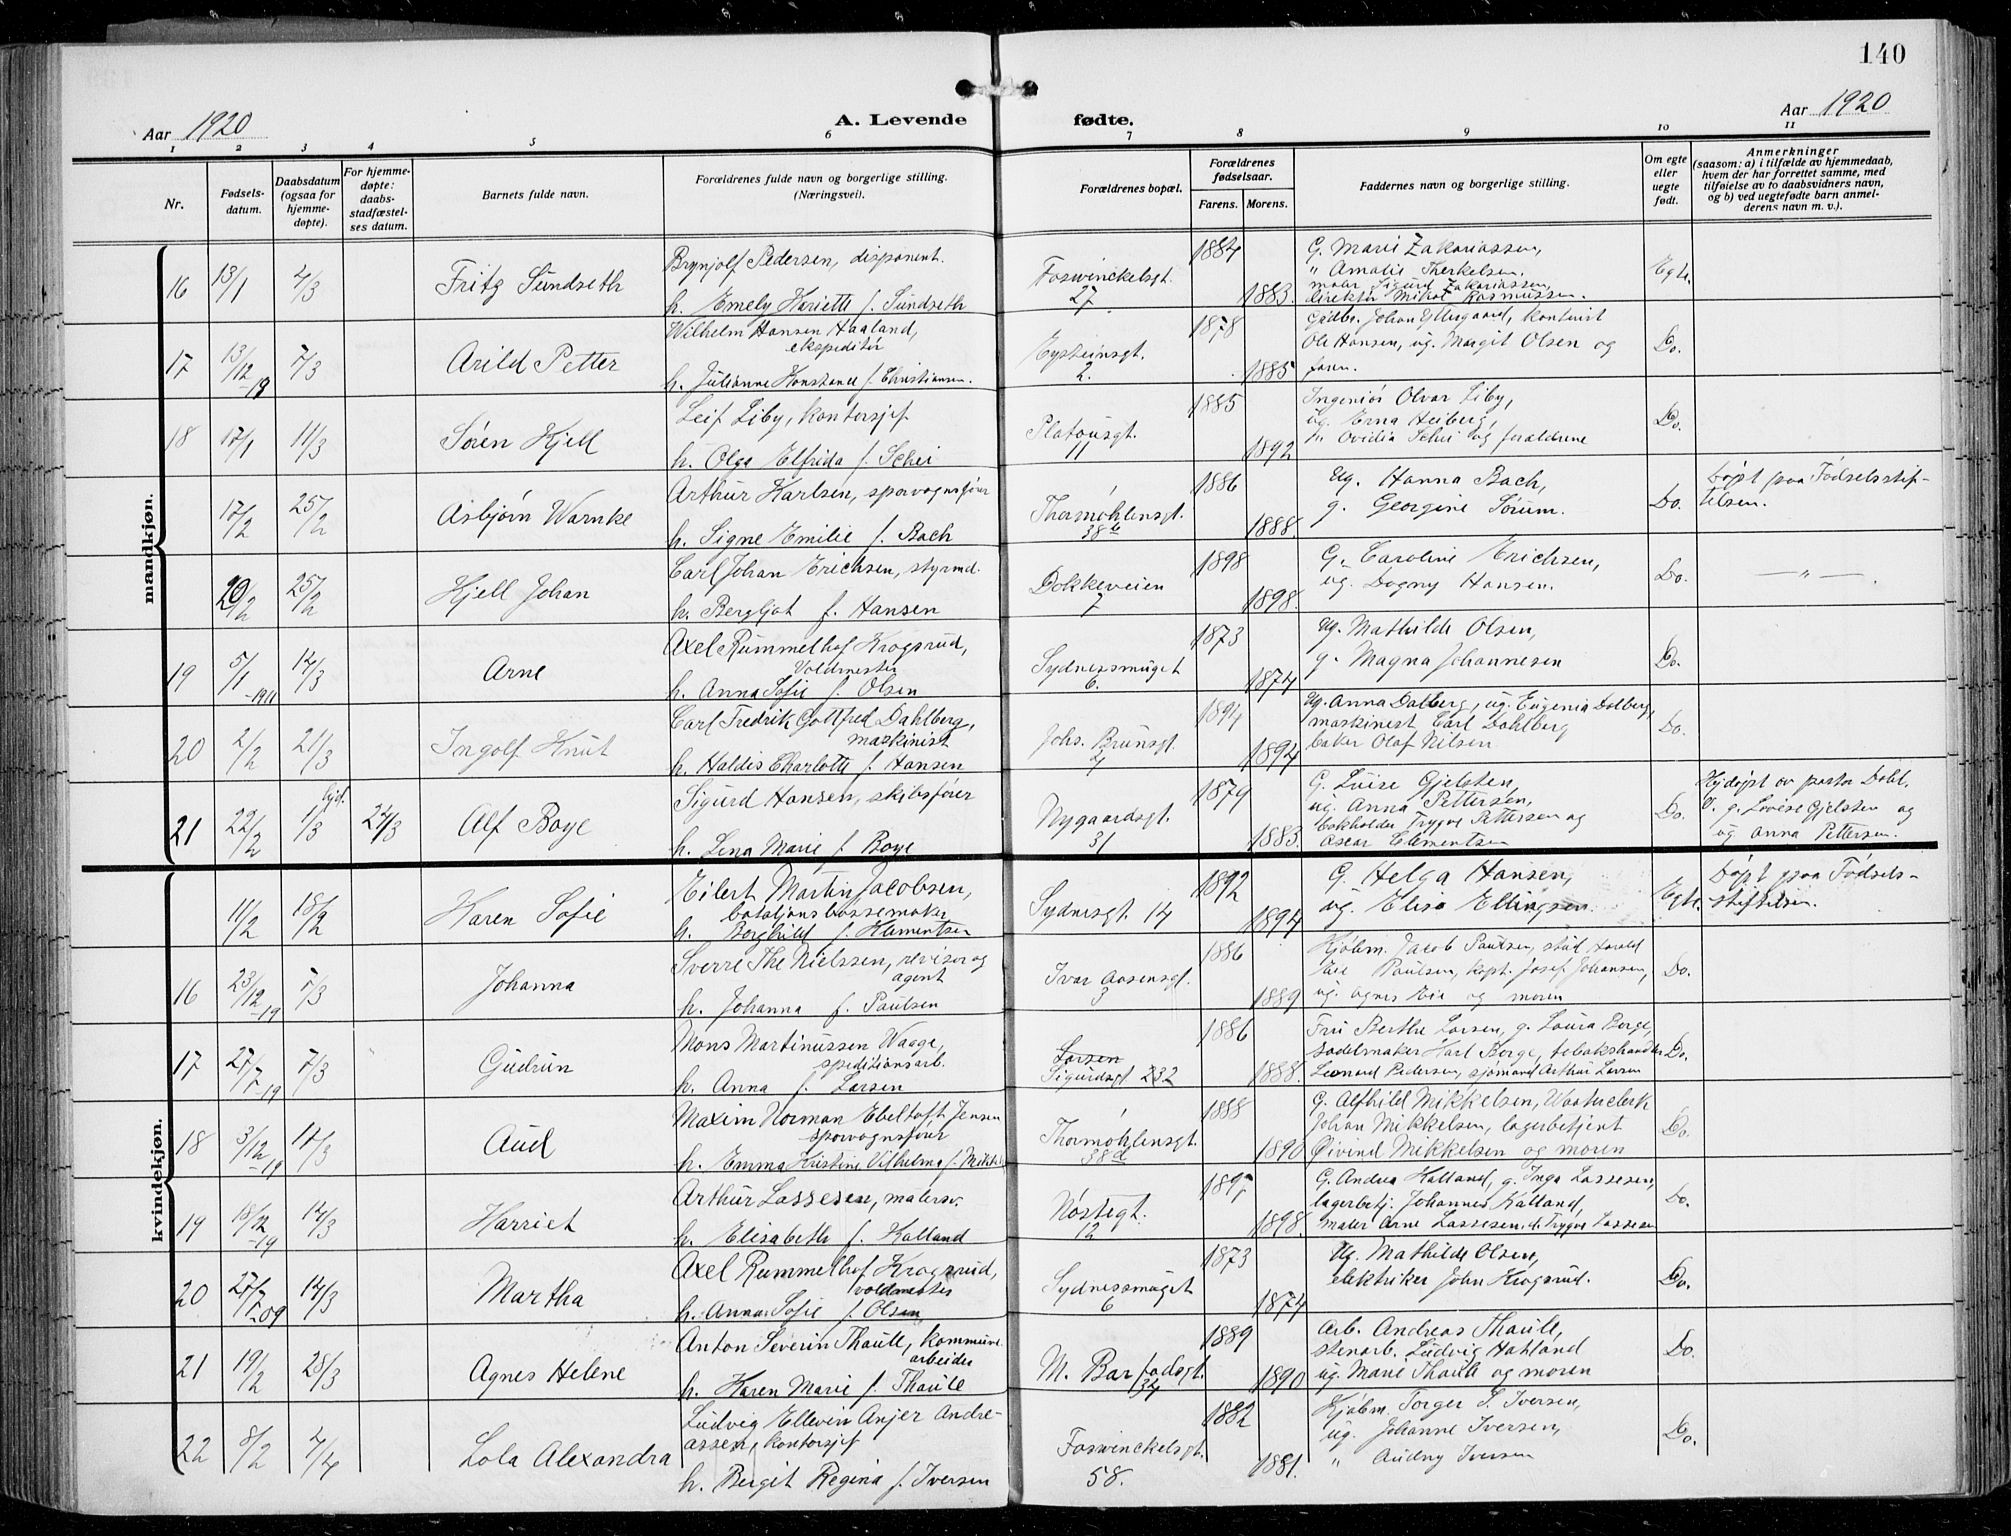 140
Aar 1920
A. Levende fødte.
Aar 1920
1 2 3 4 5 6 7 8 9 10 11
Nr.
Fødsels-
datum.
Daabsdatum
(ogsaa for
hjemme-
døpte).
For hjemme-
døpte:
daabs-
stadfæstel-
ses datum.
Barnets fulde navn.
Forældrenes fulde navn og borgerlige stilling.
(Næringsvei).
Forældrenes bopæl.
Forældrenes
fødselsaar.
Farens. Morens.
Faddernes navn og borgerlige stilling.
Om egte
eller
uegte
født.
Anmerkninger
(saasom: a) i tilfælde av hjemmedaab,
hvem der har forrettet samme, med
tilføielse av to daabsvidners navn,
og b) ved uegtefødte barn anmel-
derens navn m. v.).
mandkjøn.
16 13/1 4/3 Fritz Sundseth
Brynjolf Pedersen, disponent.
h. Emely Henriette f. Sundseth
Foswinckelsgt.
27
1884 1883.
G. Marie Zakariassen,
" Amalie Therkelsen.
maler Sigurd Zakariassen,
direktør Mikal Rasmussen.
Egte.
17 13/12 -19 7/3 Arild Petter
Wilhelm Hansen Haaland,
ekspeditør
h. Julianne Konstance f. Christiansen.
Eysteinsgt.
2.
1878 1885
Gadbr. Johan Yttergaard, kontorist
Ole Hansen, ug. Margit Olsen og
faren.
Do.
18 17/1 11/3 Søren Kjell
Leif Liby, kontorsjef
h. Olga Elfrida f. Schei
Platousgt.
11
1885 1892
Ingeniør Olvar Liby,
ug. Erna Heiberg,
" Ovidia Schei og forældrene
Do.
17/2 25/2 Asbjørn Warnke
Arthur Karlsen, sporvognsfører
h. Signe Emilie f. Bach
Thormøhlensgt.
38b
1886 1888.
Ug. Hanna Bach,
g. Georgine Sørum.
Do.
Døpt paa Fødselsstif-
telsen.
20/2 25/2 Kjell Johan
Carl Johan Erichsen, styrmd.
h. Bergljot f. Hansen
Dokkeveien
7
1898 1898.
G. Caroline Erichsen,
ug. Dagny Hansen.
Do.
— " —
19 5/1 -1911 14/3 Arne
Axel Rummelhof Krogsrud,
Voldmester
h. Anna Sofie f. Olsen
Sydnessmuget
6.
1873 1874
Ug. Mathilde Olsen,
g. Magna Johannesen
Do.
20 2/2 21/3 Ingolf Knut
Carl Fredrik Gottfred Dahlberg,
maskinist
h. Haldis Charlotte f. Hansen
Johs. Brunsgt.
4
1894 1894
Ug. Anna Dalberg, ug. Eugenia Dalberg,
maskinist Carl Dahlberg
baker Olaf Nilsen
Do.
21 22/2 hjd. 1/3 24/3 Alf Boye
Sigurd Hansen, skibsfører
h. Lena Marie f. Boye
Nygaardsgt.
31
1879 1883.
G. Luise Gjelsten,
ug. Anna Pettersen,
bokholder Trygve Pettersen og
Oscar Clementsen
Do.
Hjdøpt av pastor Dahl.
V. g. Lovise Gjelsten og
ug Anna Pettersen.
kvindekjøn.
11/2 18/2 Karen Sofie
Eilert Martin Jacobsen,
bataljonsbøssemaker
h. Borghild f. Klementsen
Sydnesgt. 14
1892 1894
G. Helga Hansen,
ug. Elisa Ellingsen.
Egte.
Døpt paa Fødsels-
stiftelsen.
16 23/12 -19 7/3 Johanna
Sverre The Nielssen, revisor og
agent
h. Johanna f. Paulsen
Ivar Aasensgt.
3
1886 1889
Kjøbm. Jacob Paulsen, stud Harald
Eie Paulsen, kapt. Josef Johansen,
ug. Agnes Eie og moren
Do.
17 27/7 -19 7/3 Gudrun
Mons Martinussen Waage,
speditionsarb.
h. Anna f. Larsen
Larsen
Sigurdsgt 232
1886 1888.
Fru Berthe Larsen, g. Laura Berge,
sadelmaker Karl Berge, tobakshandler
Leonard Pedersen, sjømand Arthur Larsen
Do.
18 3/12 -19 14/3 Aud
Maxim Norman Ebeltoft Jensen
sporvognsfører
h. Emma Kristine Vilhelma f. Mikkels
Thormøhlensgt.
38d
1888 1890
G. Alfhild Mikkelsen, Waterclerk
Johan Mikkelsen, lagerbetjent
Øivind Mikkelsen og moren
Do.
19 18/12 -19 14/3 Harriet
Arthur Lassesen, malersv.
h. Elisabeth f. Kalland
Nøstegt.
12
1897, 1898.
G. Andrea Kalland, g. Inga Lassesen,
lagerbetj. Johannes Kalland,
maler Arne Lassesen, do Trygve Lassesen
Do.
20 27/7 -09 14/3 Martha
Axel Rummelhof Krogsrud,
voldmester
h. Anna Sofie f. Olsen
Sydnessmuget
6
1873 1874
Ug. Mathilde Olsen,
elektriker John Krogsrud.
Do.
21 19/2 28/3 Agnes Helene
Anton Severin Thaule, kommune
arbeider
h. Karen Marie f. Thaule
M. Barfodsgt.
34
1889 1890
Arb. Andreas Thaule,
stenarb. Ludvig Haaland
ug. Marie Thaule og moren
Do.
22 8/2 4/4 Lola Alexandra
Ludvig Ellevin Anjer Andre-
assen, kontorsjef
h. Bergit Regina f. Iversen
Foswinckelsgt.
58.
1882 1881.
Kjøbm. Torger S. Iversen,
ug. Johanne Iversen,
" Audny Iversen
Do.